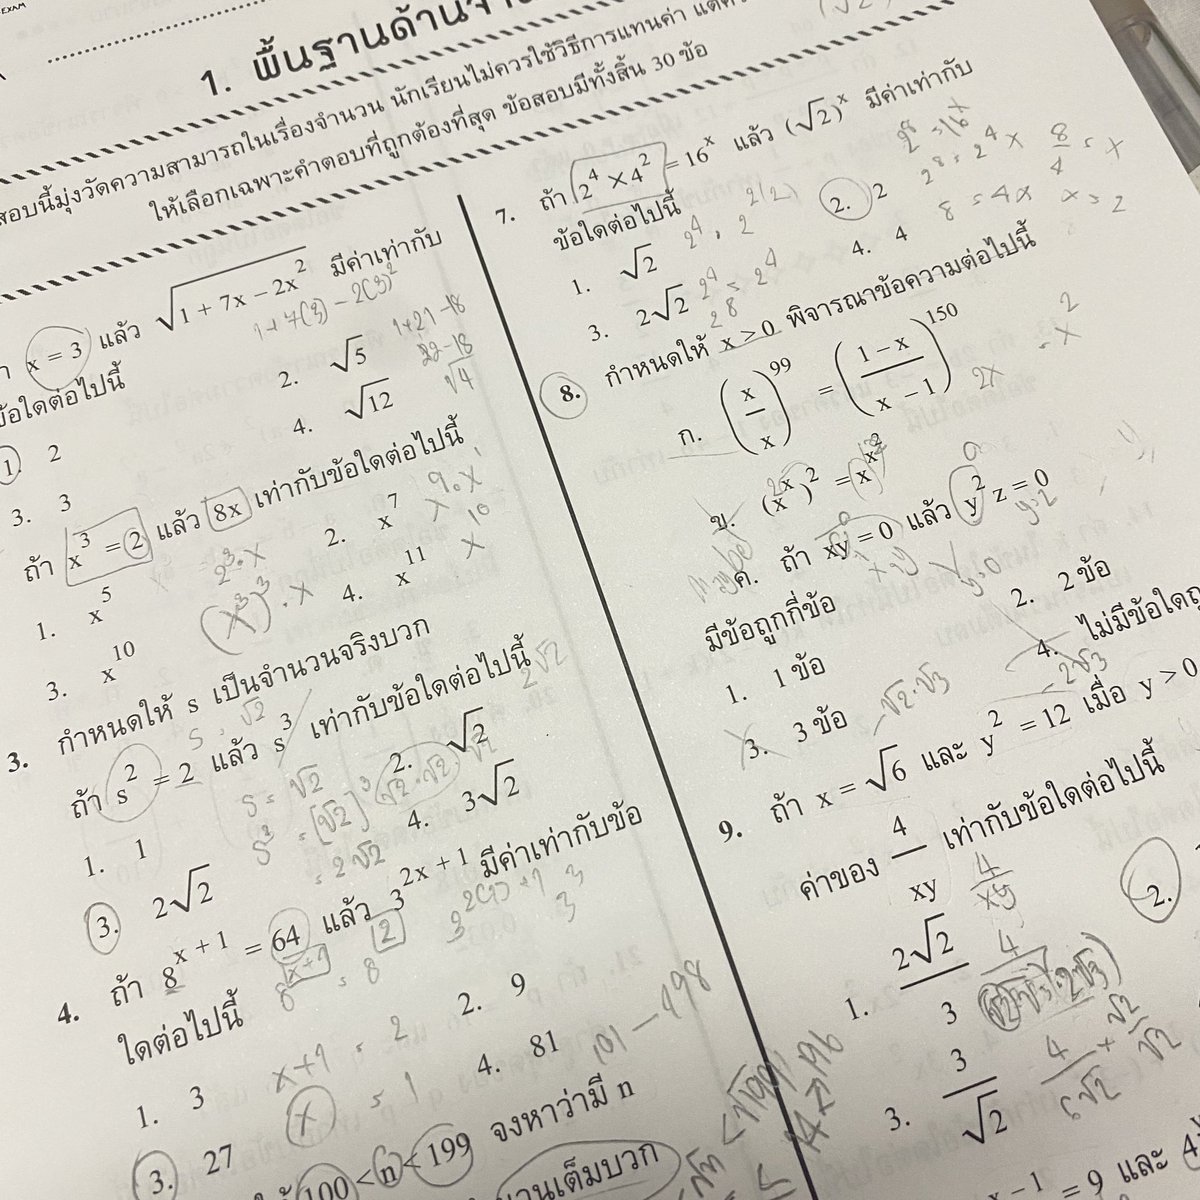 EXAM
1. พื้นฐานด้าน
สอบนี้มุ่งวัดความสามารถในเรื่องจำนวน นักเรียนไม่ควรใช้วิธีการแทนค่า
ให้เลือกเฉพาะคำตอบที่ถูกต้องที่สุด ข้อสอบมีทั้งสิ้น 30 ข้อ
x = 3 แล้ว √(1 + 7x − 2x²) มีค่าเท่ากับ
1+7(3) − 2(3)²
ข้อใดต่อไปนี้
1+21−18
22−18
√4
1. 2
2. √5
3. 3
4. √12
ถ้า x³ = 2 แล้ว 8x เท่ากับข้อใดต่อไปนี้
2³·x
(x³)³·x
x⁹·x¹
x¹⁰
1. x⁵
2. x⁷
3. x¹⁰
4. x¹¹
3. กำหนดให้ s เป็นจำนวนจริงบวก
ถ้า s² = 2 แล้ว s³ เท่ากับข้อใดต่อไปนี้
s = √2
s³ = (√2)³
= 2√2
1. 1
2. √2
3. 2√2
4. 3√2
4. ถ้า 8^(x + 1) = 64 แล้ว 3^(2x + 1) มีค่าเท่ากับข้อ
ใดต่อไปนี้
8^(x+1) = 8²
3^(2(1)+1)
3³
x+1 = 2
x = 1
1. 3
2. 9
3. 27
4. 81
101 − 198
100 < n < 199 จงหาว่ามี n
7. ถ้า 2⁴ × 4² = 16ˣ แล้ว (√2)ˣ มีค่าเท่ากับ
ข้อใดต่อไปนี้
2⁸ = 16ˣ
2⁸ = 2⁴ˣ
8 = 4x
8/4 = x
x = 2
1. √2
2. 2
3. 2√2
4. 4
8. กำหนดให้ x > 0 พิจารณาข้อความต่อไปนี้
ก. (x/x)⁹⁹ = ((1 − x)/(x − 1))¹⁵⁰
ข. (xˣ)² = x^(x²)
ค. ถ้า xy = 0 แล้ว y²z = 0
มีข้อถูกกี่ข้อ
1. 1 ข้อ
2. 2 ข้อ
3. 3 ข้อ
4. ไม่มีข้อใด
9. ถ้า x = √6 และ y² = 12 เมื่อ y > 0
√2·√3
2√3
ค่าของ 4/xy เท่ากับข้อใดต่อไปนี้
4/xy
1. 2√2/3
2.
3. 3/√2
4/6√2 × √2/√2
⁻¹ = 9 และ 4